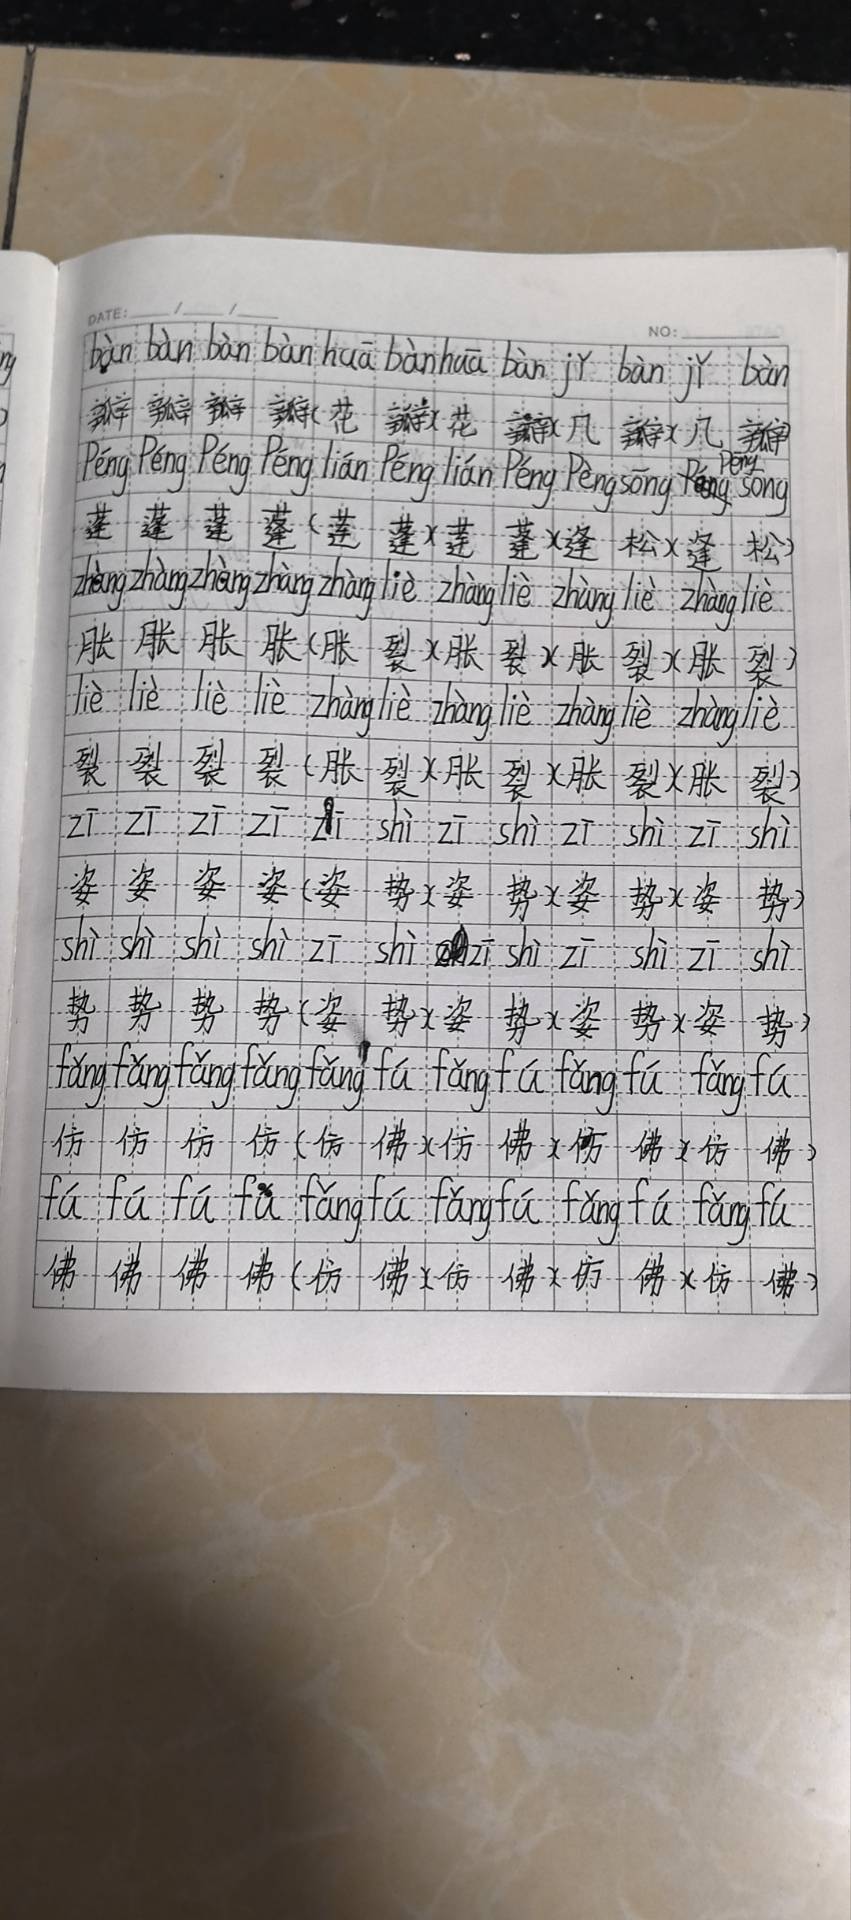 DATE: ____/____/____
NO: ________
bàn bàn bàn bàn huā bàn huā bàn jǐ bàn jǐ bàn
瓣 瓣 瓣 瓣(花 瓣)(花 瓣)(几 瓣)(几 瓣
Péng Péng Péng Péng lián Péng lián Péng Pèng sōng Péng sōng
蓬 蓬 蓬 蓬(莲 蓬)(莲 蓬)(逢 松)(逢 松)
zhàng zhàng zhàng zhàng zhàng liè zhàng liè zhàng liè zhàng liè
胀 胀 胀 胀(胀 裂)(胀 裂)(胀 裂)(胀 裂)
liè liè liè liè zhàng liè zhàng liè zhàng liè zhàng liè
裂 裂 裂 裂(胀 裂)(胀 裂)(胀 裂)(胀 裂)
zī zī zī zī zī shì zī shì zī shì zī shì
姿 姿 姿 姿(姿 势)(姿 势)(姿 势)(姿 势)
shì shì shì shì zī shì zī shì zī shì zī shì
势 势 势 势(姿 势)(姿 势)(姿 势)(姿 势)
fǎng fǎng fǎng fǎng fǎng fú fǎng fú fǎng fú fǎng fú
仿 仿 仿 仿(仿 佛)(仿 佛)(仿 佛)(仿 佛)
fú fú fú fú fǎng fú fǎng fú fǎng fú fǎng fú
佛 佛 佛 佛(仿 佛)(仿 佛)(仿 佛)(仿 佛)